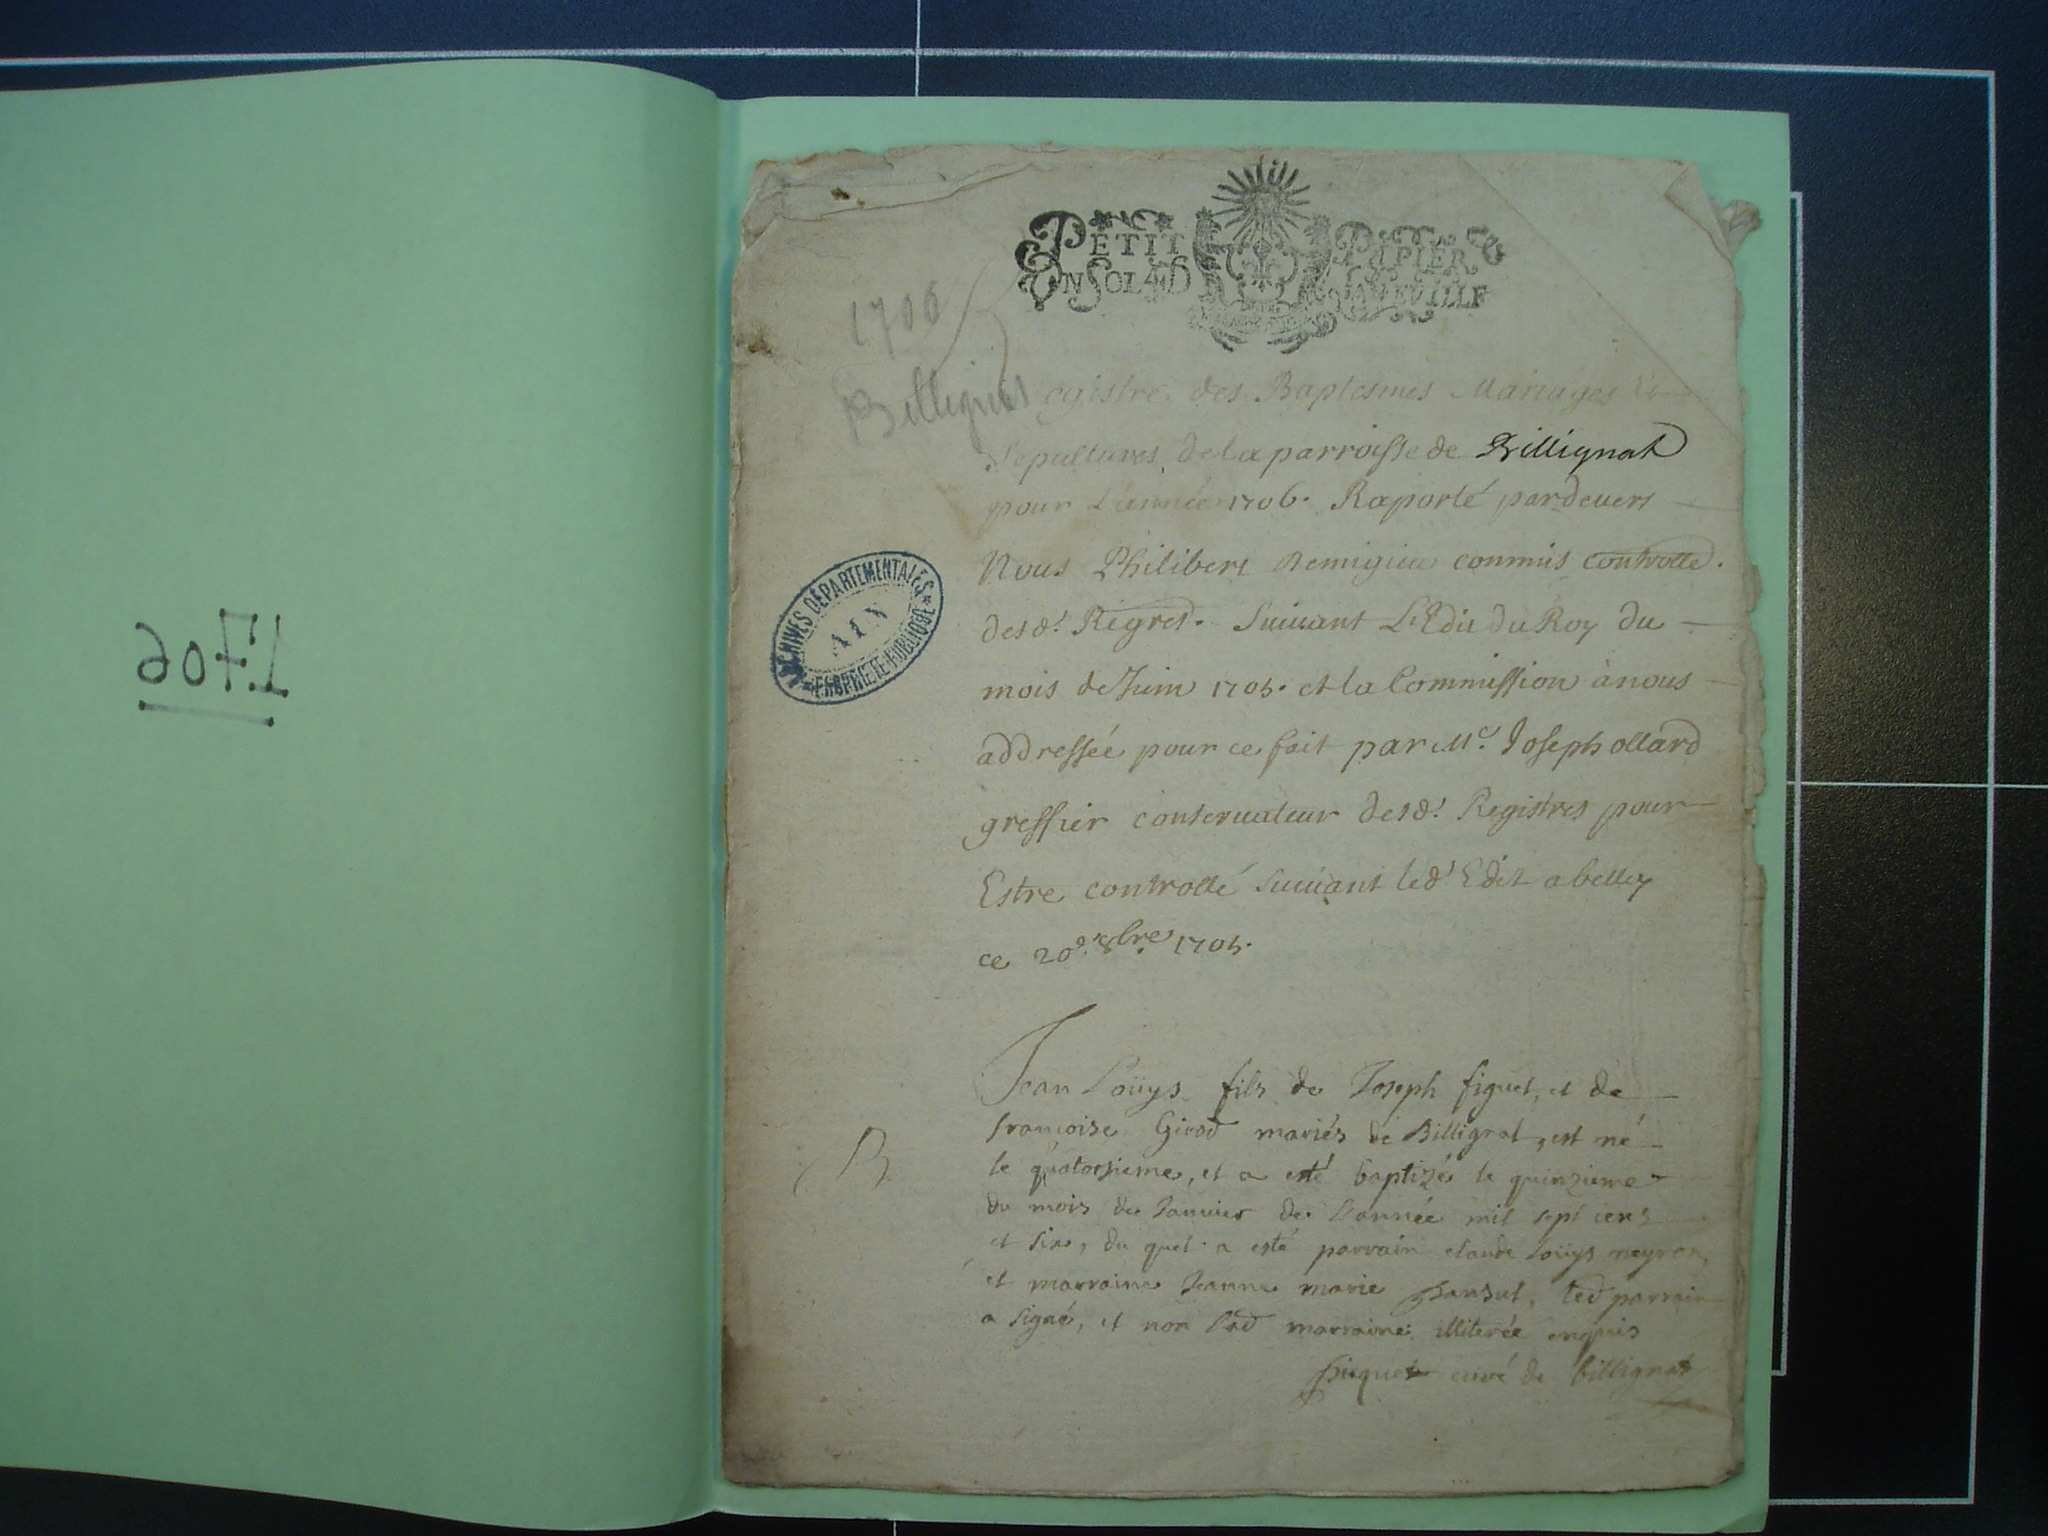 1706
PETIT PAPIER
UN SOL
1706
Billignat
ARCHIVES DÉPARTEMENTALES
AIN
PROPRIÉTÉ PUBLIQUE
Registre des Baptesmes Mariages Et
Sepultures de la parroisse de Billignat
pour L'année 1706. Raporté pardevers
Nous Philibert Remigieu commis controlle.
desd. Regres. Suivant L'Edit du Roy du
mois de Juin 1705. et la Commission à nous
addressée pour ce fait par Me. Joseph ollard
greffier conservateur desd. Registres pour
Estre controllé suivant led. Edit a belley
ce 20e. 8bre. 1705.
Jean Loüys fils de Joseph figuet, et de
francoise Girod mariés de Billignat, est né
le quatorsieme, et a esté baptizé le quinzieme
du mois de Januier de L'année mil sept cens
et six, du quel a esté parrain claude Loüys neyron,
et marraine Jeanne marie led parrain
a signé, et non Lad marraine illiterée enquis
curé de billignat